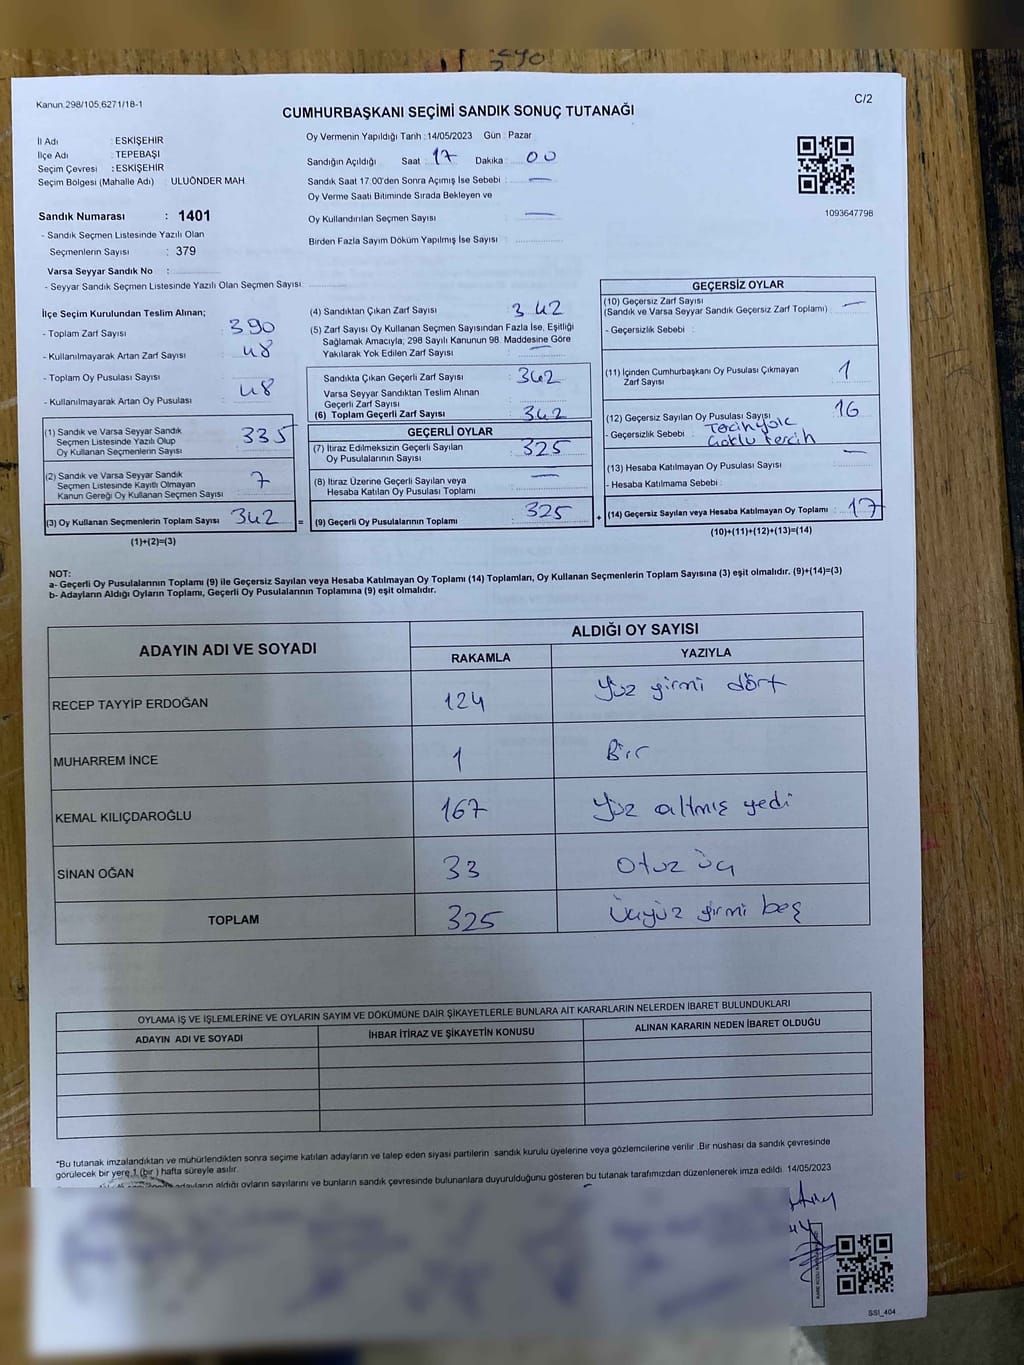 Kanun.298/105,6271/18-1
C/2
CUMHURBAŞKANI SEÇİMİ SANDIK SONUÇ TUTANAĞI
İl Adı : ESKİŞEHİR
İlçe Adı : TEPEBAŞI
Seçim Çevresi : ESKİŞEHİR
Seçim Bölgesi (Mahalle Adı) : ULUÖNDER MAH
Sandık Numarası : 1401
- Sandık Seçmen Listesinde Yazılı Olan
Seçmenlerin Sayısı : 379
Varsa Seyyar Sandık No :
- Seyyar Sandık Seçmen Listesinde Yazılı Olan Seçmen Sayısı:
Oy Vermenin Yapıldığı Tarih : 14/05/2023 Gün : Pazar
Sandığın Açıldığı Saat : 17 Dakika : 00
Sandık Saat 17:00'den Sonra Açımış İse Sebebi : —
Oy Verme Saati Bitiminde Sırada Bekleyen ve
Oy Kullandırılan Seçmen Sayısı : —
Birden Fazla Sayım Döküm Yapılmış İse Sayısı :
1093647798
İlçe Seçim Kurulundan Teslim Alınan;
- Toplam Zarf Sayısı : 390
- Kullanılmayarak Artan Zarf Sayısı : 48
- Toplam Oy Pusulası Sayısı :
- Kullanılmayarak Artan Oy Pusulası : 48
(1) Sandık ve Varsa Seyyar Sandık
Seçmen Listesinde Yazılı Olup
Oy Kullanan Seçmenlerin Sayısı : 335
(2) Sandık ve Varsa Seyyar Sandık
Seçmen Listesinde Kayıtlı Olmayan
Kanun Gereği Oy Kullanan Seçmen Sayısı : 7
(3) Oy Kullanan Seçmenlerin Toplam Sayısı : 342
(1)+(2)=(3)
(4) Sandıktan Çıkan Zarf Sayısı : 342
(5) Zarf Sayısı Oy Kullanan Seçmen Sayısından Fazla İse, Eşitliği
Sağlamak Amacıyla, 298 Sayılı Kanunun 98. Maddesine Göre
Yakılarak Yok Edilen Zarf Sayısı : —
Sandıkta Çıkan Geçerli Zarf Sayısı : 342
Varsa Seyyar Sandıktan Teslim Alınan
Geçerli Zarf Sayısı :
(6) Toplam Geçerli Zarf Sayısı : 342
GEÇERLİ OYLAR
(7) İtiraz Edilmeksizin Geçerli Sayılan
Oy Pusulalarının Sayısı : 325
(8) İtiraz Üzerine Geçerli Sayılan veya
Hesaba Katılan Oy Pusulası Toplamı : —
= (9) Geçerli Oy Pusulalarının Toplamı : 325
GEÇERSİZ OYLAR
(10) Geçersiz Zarf Sayısı
(Sandık ve Varsa Seyyar Sandık Geçersiz Zarf Toplamı) : —
- Geçersizlik Sebebi :
(11) İçinden Cumhurbaşkanı Oy Pusulası Çıkmayan
Zarf Sayısı : 1
(12) Geçersiz Sayılan Oy Pusulası Sayısı : 16
- Geçersizlik Sebebi : Tercih yok
Çoklu tercih
(13) Hesaba Katılmayan Oy Pusulası Sayısı : —
- Hesaba Katılmama Sebebi :
+ (14) Geçersiz Sayılan veya Hesaba Katılmayan Oy Toplamı : 17
(10)+(11)+(12)+(13)=(14)
NOT:
a- Geçerli Oy Pusulalarının Toplamı (9) ile Geçersiz Sayılan veya Hesaba Katılmayan Oy Toplamı (14) Toplamları, Oy Kullanan Seçmenlerin Toplam Sayısına (3) eşit olmalıdır. (9)+(14)=(3)
b- Adayların Aldığı Oyların Toplamı, Geçerli Oy Pusulalarının Toplamına (9) eşit olmalıdır.
ADAYIN ADI VE SOYADI
ALDIĞI OY SAYISI
RAKAMLA YAZIYLA
RECEP TAYYİP ERDOĞAN 124 Yüz yirmi dört
MUHARREM İNCE 1 Bir
KEMAL KILIÇDAROĞLU 167 Yüz altmış yedi
SİNAN OĞAN 33 Otuz üç
TOPLAM 325 Üçyüz yirmi beş
OYLAMA İŞ VE İŞLEMLERİNE VE OYLARIN SAYIM VE DÖKÜMÜNE DAİR ŞİKAYETLERLE BUNLARA AİT KARARLARIN NELERDEN İBARET BULUNDUKLARI
ADAYIN ADI VE SOYADI İHBAR İTİRAZ VE ŞİKAYETİN KONUSU ALINAN KARARIN NEDEN İBARET OLDUĞU
*Bu tutanak imzalandıktan ve mühürlendikten sonra seçime katılan adayların ve talep eden siyasi partilerin sandık kurulu üyelerine veya gözlemcilerine verilir .Bir nüshası da sandık çevresinde
görülecek bir yere 1 (bir ) hafta süreyle asılır.
adayların aldığı oyların sayılarını ve bunların sandık çevresinde bulunanlara duyurulduğunu gösteren bu tutanak tarafımızdan düzenlenerek imza edildi. 14/05/2023
SSI_404